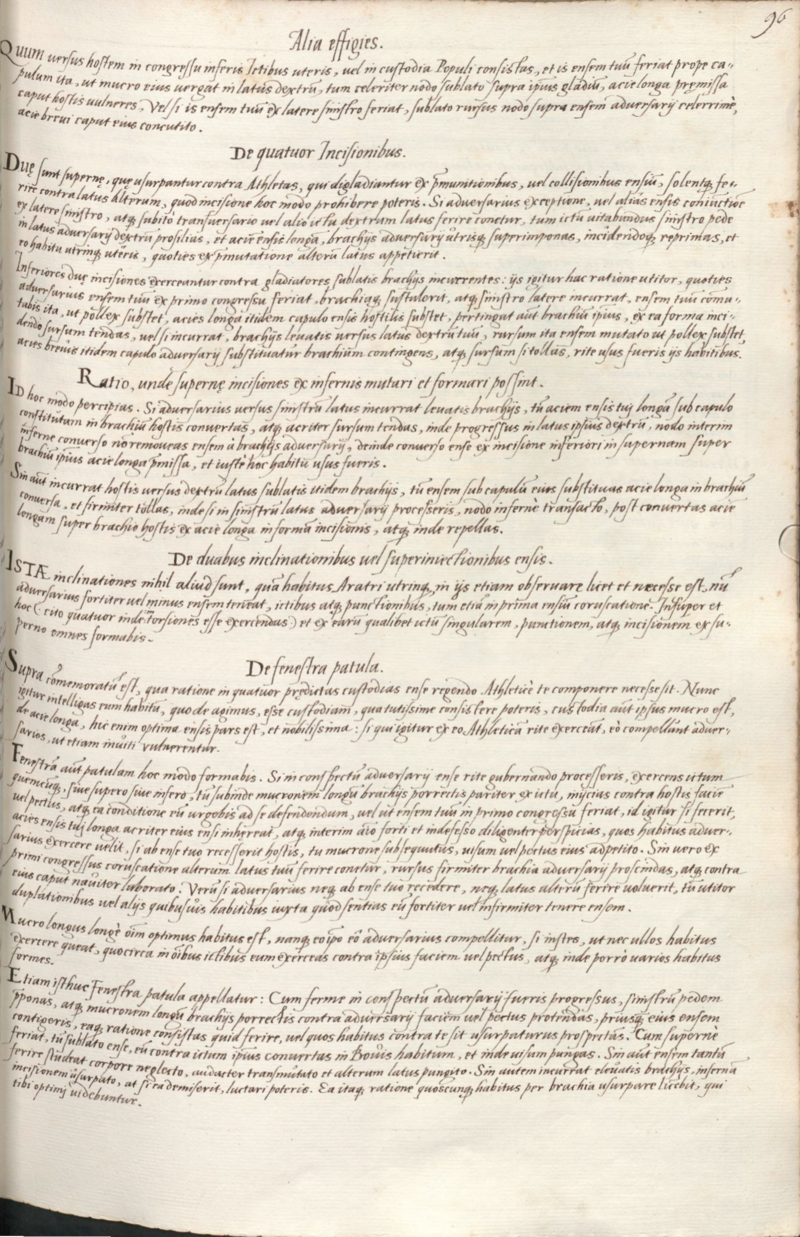 96
Alia effigies.
Quum versus hostem in congressu inferis Ictibus uteris, vel in custodia Populi consistas, et is ensem tuũ feriat prope ca-
pulum ita, ut mucro eius vergat in latus dextrũ, tum celeriter nodo sublato supra ipius gladiũ, acie longa premissa
caput hostis vulneres. Vel si is ensem tuũ ex latere sinistro feriat, sublato rursus nodo supra ensem adversarij celerrimè,
acie brevi caput eius concutito.
De quatuor Incisionibus.
Duę sunt supernę, quę usurpantur contra Athletas, qui digladiantur ex pmutionibus, vel collisionibus ensiũ, solentq̨ fe-
rire contra latus Alterum, quod incisione hoc modo prohibere poteris. Si adversarius exceptione, vel alias ensis coniunctiõe
ex latere sinistro, atq̨ subito transversario vel alio ictu dextram latus ferire conetur, tum ictu vitabundus sinistro pede
in latus adversarij dextrũ prosilias, et acie ensis longa, brachijs adversarij utrisq̨ superimponas, incidendoq̨ reprimas, et
eo habitu utrinq̨ uteris, quoties ex pmutatione alterũ latus appetierit.
Inferiores duę incisiones exerceantur contra gladiatores sublatis brachijs incurrentes: ijs igitur hac ratione utitor, quoties
adversarius ensem tuũ ex primo congressu feriat, brachiaq̨ sustulerit, atq̨ sinistro latere incurrat, ensem tuũ cõmu-
tabis ita, ut pollex substet, acies longa itidem capulo ensis hostilis substet, pertingat aut brachiũ ipius, ex ea forma inci-
dendo sursum tendas, vel si incurrat, brachijs levatis versus latus dextrũ tuũ, rursum ita ensem mutato ut pollex substet,
acies brevis itidem capulo adversarij substituatur brachium contingens, atq̨ sursum si tollis, rite usus fueris ijs habitibus.
Ratio, unde supernę incisiones ex infernis mutari et formari possint.
ID hoc modo percipias. Si adversarius versus sinistrũ latus incurrat levatis brachijs, tũ aciem ensis tuj longã sub capulo
constitutam in brachiũ hostis convertas, atq̨ acriter sursum tendas, inde progressus in latus ipsius dextrũ, nodo interim
inferne converso nõ removeas ensem à brachijs adversarij, deinde converso ense ex incisione inferiori in supernam super
brachiũ ipius acie longa pmissa, et iustè hoc habitũ usus fueris.
Sin aut incurrat hostis versus dextrũ latus sublatis itidem brachijs, tũ ensem sub capulũ eius substituas acie longa in brachiũ
conversa, et firmiter tollas, inde si in sinistrũ latus adversarij processeris, nodo inferne transacto, post convertas acie
longam super brachio hostis ex acie longa in formã incisionis, atq̨ inde repellas.
De duabus inclinationibus vel superiniectionibus ensis.
ISTÆ inclinationes nihil aliud sunt, quã habitus Aratri utrinq̨, in ijs etiam observare licet et necesse est, nũ
adversarius fortiter vel minus ensem teneat, ictibus atq̨ punctionibus, tum etiã in prima ensiũ coruscatione. Insuper et
hoc (cito quatuor inde torsiones esse exercendas) et ex earũ qualibet ictũ singularem, punctionem, atq̨ incisionem ex su-
perno omnes formabis.
De fenestra patula.
Supra cõmemoratũ est, qua ratione in quatuor predictas custodias ense regendo Athleticè te componere necesse sit. Nunc
igitur intelligas eum habitũ, quo de agimus, esse custodiam, qua tutissime consistere poteris, custodia aut ipsus mucro est,
de acie longa, hic enim optima ensis pars est, et nobilissima: si qui igitur ex eo Athleticã rite exercent, eò compellunt adver-
sarios, ut etiam inviti vulnerentur.
Fenestrã aut patulam hoc modo formabis. Si in conspectũ adversarij ense rite gubernando processeris, exercens ictum
quemcũq̨, sive supero sive infero, tũ subinde mucronem longũ brachijs porrectis pariter ex ictu, injcias contra hostis facie
vel pectus, atq̨ ea conditione eũ urgebis ad se defendendum, vel ut ensem tuũ in primo congressu feriat, id igitur si fecerit,
acies ensis tuj longa acriter eius ensi inhereat, atq̨ interim aĩo forti et indefesso diligenter perspicias, quos habitus adver-
sarius exercere velit. Si ab ense tuo recesserit hostis, tu mucrone subsequutus, visum vel pectus eius adpetito. Sin vero ex
primi congressus coruscatione alterum latus tuũ ferire conetur, rursus firmiter brachia adversarij proscindas, atq̨ contra
eius caput naviter laborato. Verũ si adversarius neq̨ ab ense tuo recedere, neq̨ latus alterũ ferire voluerit, tũ utitor
duplationibus vel alijs quibusvis habitibus iuxta quod sentias eũ fortiter vel infirmiter tenere ensem.
Mucro longus longè oĩm optimus habitus est, nanq̨ eo ipo eò adversarius compellitur, si instes, ut nec ullos habitus
exercere queat, quocirca in oĩbus ictibus eum exerceas contra ipsius faciem vel pectus, atq̨ inde porrò varios habitus
formes.
Etiam isthuc Fenestra patula appellatur: Cum ferme in conspectũ adversarij fueris progressus, sinistrũ pedem
pponas, atq̨ mucronem longũ brachijs porrectis contra adversarij faciem vel pectus protendas, priusq̨ eius ensem
contigeris, eaq̨ ratione consistas quid ferire, vel quos habitus contra te sit usurpaturus prospectas. Cum supernè
feriat, tũ sublato ense, eũ contra ictum ipius convertas in Bovis habitum, et inde visum pungas. Sin aut ensem tantũ
ferire studeat corpore neglecto, audacter transmutato et alterum latus pungito. Sin autem incurrat elevatis brachijs, infernã
incisionem usurpato, at si ea demiserit, luctari poteris. Ea itaq̨ ratione quoscunq̨ habitus per brachia usurpare licebit, qui
tibi optimj videbuntur.